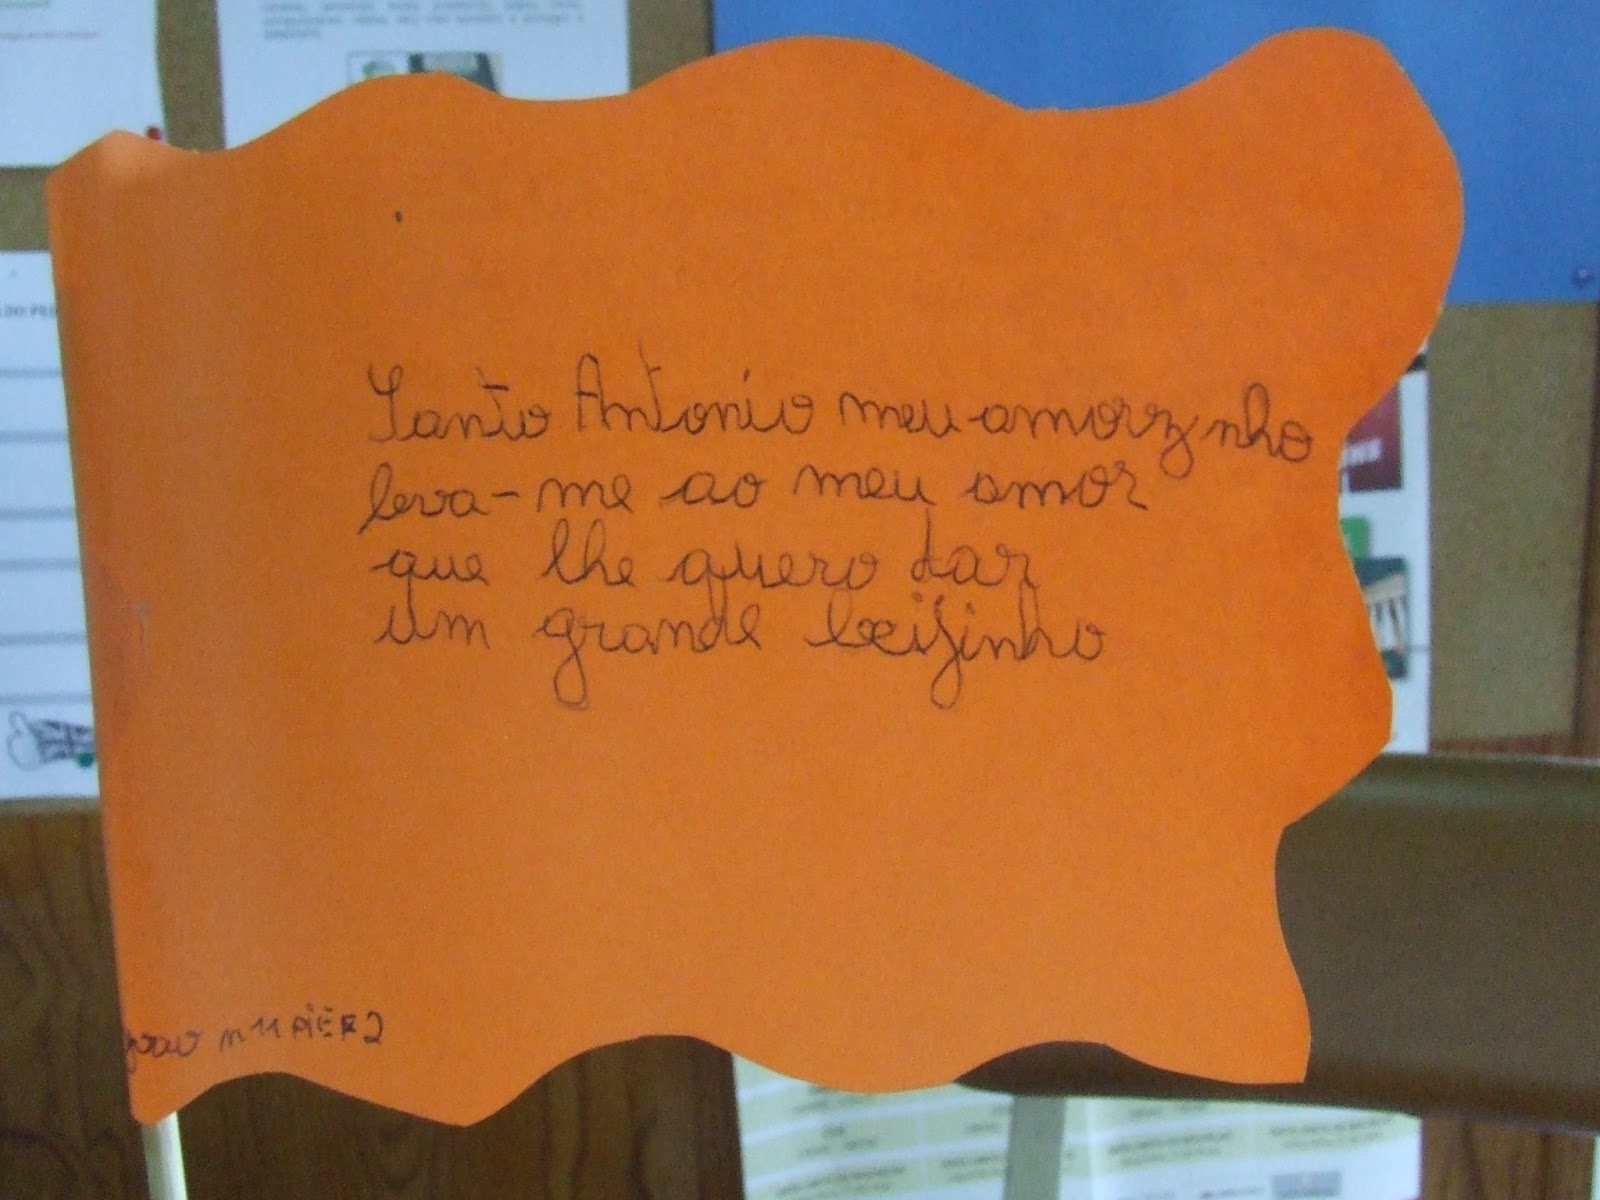 Santo Antonio meu amorzinho
leva-me ao meu amor
que lhe quero dar
um grande beijinho
joao n 11 PIEF2